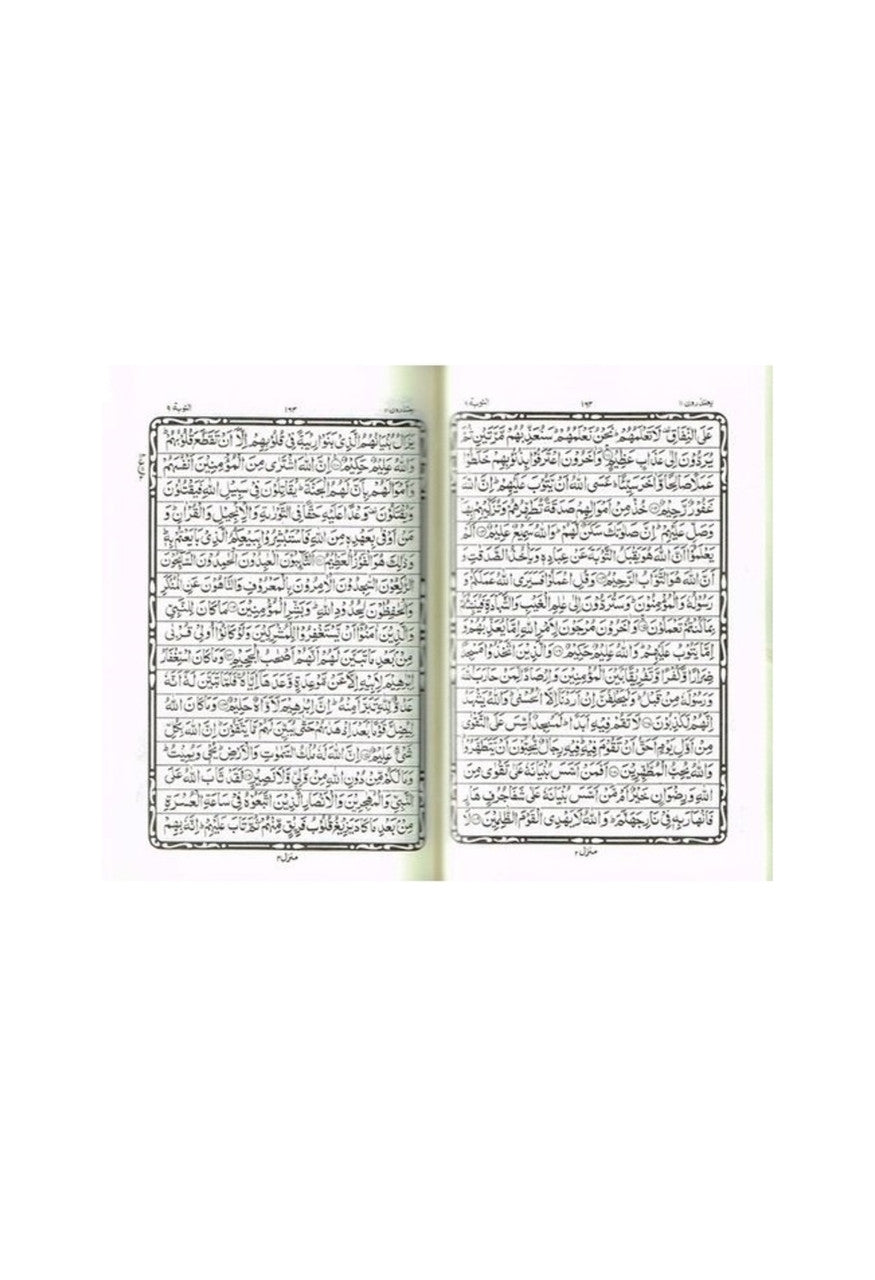 يعتذرون ١١
١٦٣
التوبة ٩
عَلَى النِّفَاقِ لَا تَعْلَمُهُمْ نَحْنُ نَعْلَمُهُمْ سَنُعَذِّبُهُمْ مَّرَّتَيْنِ ثُمَّ
يُرَدُّوْنَ اِلٰى عَذَابٍ عَظِيْمٍ وَاٰخَرُوْنَ اعْتَرَفُوْا بِذُنُوْبِهِمْ خَلَطُوْا
عَمَلًا صَالِحًا وَّاٰخَرَ سَيِّئًا عَسَى اللّٰهُ اَنْ يَّتُوْبَ عَلَيْهِمْ اِنَّ اللّٰهَ
غَفُوْرٌ رَّحِيْمٌ خُذْ مِنْ اَمْوَالِهِمْ صَدَقَةً تُطَهِّرُهُمْ وَتُزَكِّيْهِمْ بِهَا
وَصَلِّ عَلَيْهِمْ اِنَّ صَلٰوتَكَ سَكَنٌ لَّهُمْ وَاللّٰهُ سَمِيْعٌ عَلِيْمٌ اَلَمْ
يَعْلَمُوْا اَنَّ اللّٰهَ هُوَ يَقْبَلُ التَّوْبَةَ عَنْ عِبَادِهٖ وَيَاْخُذُ الصَّدَقٰتِ وَ
اَنَّ اللّٰهَ هُوَ التَّوَّابُ الرَّحِيْمُ وَقُلِ اعْمَلُوْا فَسَيَرَى اللّٰهُ عَمَلَكُمْ وَ
رَسُوْلُهٗ وَالْمُؤْمِنُوْنَ وَسَتُرَدُّوْنَ اِلٰى عٰلِمِ الْغَيْبِ وَالشَّهَادَةِ فَيُنَبِّئُكُمْ
بِمَا كُنْتُمْ تَعْمَلُوْنَ وَاٰخَرُوْنَ مُرْجَوْنَ لِاَمْرِ اللّٰهِ اِمَّا يُعَذِّبُهُمْ وَ
اِمَّا يَتُوْبُ عَلَيْهِمْ وَاللّٰهُ عَلِيْمٌ حَكِيْمٌ وَالَّذِيْنَ اتَّخَذُوْا مَسْجِدًا
ضِرَارًا وَّكُفْرًا وَّتَفْرِيْقًا بَيْنَ الْمُؤْمِنِيْنَ وَاِرْصَادًا لِّمَنْ حَارَبَ اللّٰهَ
وَرَسُوْلَهٗ مِنْ قَبْلُ وَلَيَحْلِفُنَّ اِنْ اَرَدْنَا اِلَّا الْحُسْنٰى وَاللّٰهُ يَشْهَدُ
اِنَّهُمْ لَكٰذِبُوْنَ لَا تَقُمْ فِيْهِ اَبَدًا لَمَسْجِدٌ اُسِّسَ عَلَى التَّقْوٰى
مِنْ اَوَّلِ يَوْمٍ اَحَقُّ اَنْ تَقُوْمَ فِيْهِ فِيْهِ رِجَالٌ يُّحِبُّوْنَ اَنْ يَّتَطَهَّرُوْا
وَاللّٰهُ يُحِبُّ الْمُطَّهِّرِيْنَ اَفَمَنْ اَسَّسَ بُنْيَانَهٗ عَلٰى تَقْوٰى مِنَ
اللّٰهِ وَرِضْوَانٍ خَيْرٌ اَمْ مَّنْ اَسَّسَ بُنْيَانَهٗ عَلٰى شَفَا جُرُفٍ هَارٍ
فَانْهَارَ بِهٖ فِيْ نَارِ جَهَنَّمَ وَاللّٰهُ لَا يَهْدِى الْقَوْمَ الظّٰلِمِيْنَ لَا
منزل ٢
يعتذرون ١١
التوبة ٩
يَزَالُ بُنْيَانُهُمُ الَّذِيْ بَنَوْا رِيْبَةً فِيْ قُلُوْبِهِمْ اِلَّا اَنْ تَقَطَّعَ قُلُوْبُهُمْ
وَاللّٰهُ عَلِيْمٌ حَكِيْمٌ اِنَّ اللّٰهَ اشْتَرٰى مِنَ الْمُؤْمِنِيْنَ اَنْفُسَهُمْ
وَاَمْوَالَهُمْ بِاَنَّ لَهُمُ الْجَنَّةَ يُقَاتِلُوْنَ فِيْ سَبِيْلِ اللّٰهِ فَيَقْتُلُوْنَ
وَيُقْتَلُوْنَ وَعْدًا عَلَيْهِ حَقًّا فِى التَّوْرٰىةِ وَالْاِنْجِيْلِ وَالْقُرْاٰنِ وَ
مَنْ اَوْفٰى بِعَهْدِهٖ مِنَ اللّٰهِ فَاسْتَبْشِرُوْا بِبَيْعِكُمُ الَّذِيْ بَايَعْتُمْ بِهٖ
وَذٰلِكَ هُوَ الْفَوْزُ الْعَظِيْمُ اَلتَّآئِبُوْنَ الْعٰبِدُوْنَ الْحٰمِدُوْنَ السَّآئِحُوْنَ
الرّٰكِعُوْنَ السّٰجِدُوْنَ الْاٰمِرُوْنَ بِالْمَعْرُوْفِ وَالنَّاهُوْنَ عَنِ الْمُنْكَرِ
وَالْحٰفِظُوْنَ لِحُدُوْدِ اللّٰهِ وَبَشِّرِ الْمُؤْمِنِيْنَ مَا كَانَ لِلنَّبِيِّ
وَالَّذِيْنَ اٰمَنُوْا اَنْ يَّسْتَغْفِرُوْا لِلْمُشْرِكِيْنَ وَلَوْ كَانُوْا اُولِيْ قُرْبٰى
مِنْ بَعْدِ مَا تَبَيَّنَ لَهُمْ اَنَّهُمْ اَصْحٰبُ الْجَحِيْمِ وَمَا كَانَ اسْتِغْفَارُ
اِبْرٰهِيْمَ لِاَبِيْهِ اِلَّا عَنْ مَّوْعِدَةٍ وَّعَدَهَا اِيَّاهُ فَلَمَّا تَبَيَّنَ لَهٗ اَنَّهٗ
عَدُوٌّ لِّلّٰهِ تَبَرَّاَ مِنْهُ اِنَّ اِبْرٰهِيْمَ لَاَوَّاهٌ حَلِيْمٌ وَمَا كَانَ اللّٰهُ
لِيُضِلَّ قَوْمًا بَعْدَ اِذْ هَدٰىهُمْ حَتّٰى يُبَيِّنَ لَهُمْ مَّا يَتَّقُوْنَ اِنَّ اللّٰهَ بِكُلِّ
شَيْءٍ عَلِيْمٌ اِنَّ اللّٰهَ لَهٗ مُلْكُ السَّمٰوٰتِ وَالْاَرْضِ يُحْيٖ وَيُمِيْتُ
وَمَا لَكُمْ مِّنْ دُوْنِ اللّٰهِ مِنْ وَّلِيٍّ وَّلَا نَصِيْرٍ لَقَدْ تَّابَ اللّٰهُ عَلَى
النَّبِيِّ وَالْمُهٰجِرِيْنَ وَالْاَنْصَارِ الَّذِيْنَ اتَّبَعُوْهُ فِيْ سَاعَةِ الْعُسْرَةِ
مِنْ بَعْدِ مَا كَادَ يَزِيْغُ قُلُوْبُ فَرِيْقٍ مِّنْهُمْ ثُمَّ تَابَ عَلَيْهِمْ اِنَّهٗ بِهِمْ
منزل ٢